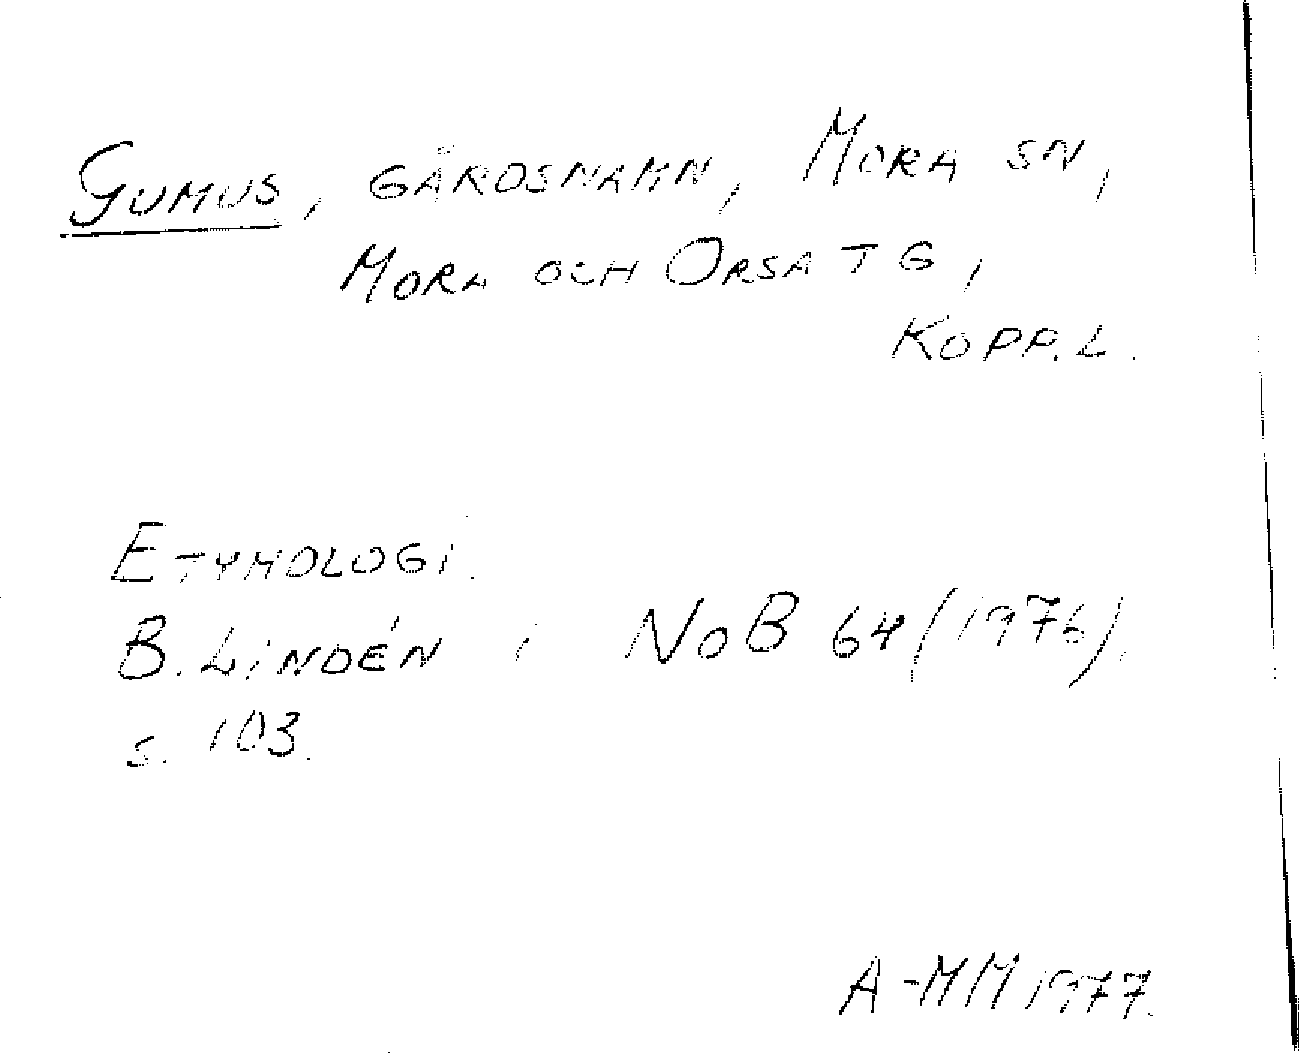 GUMUS, GÅRDSNAMN, MORA SN,
MORA OCH ORSA TG,
KOPP.L.
ETYMOLOGI.
B. LINDÉN i NoB 64 (1976),
s. 103.
A-MM 1977.